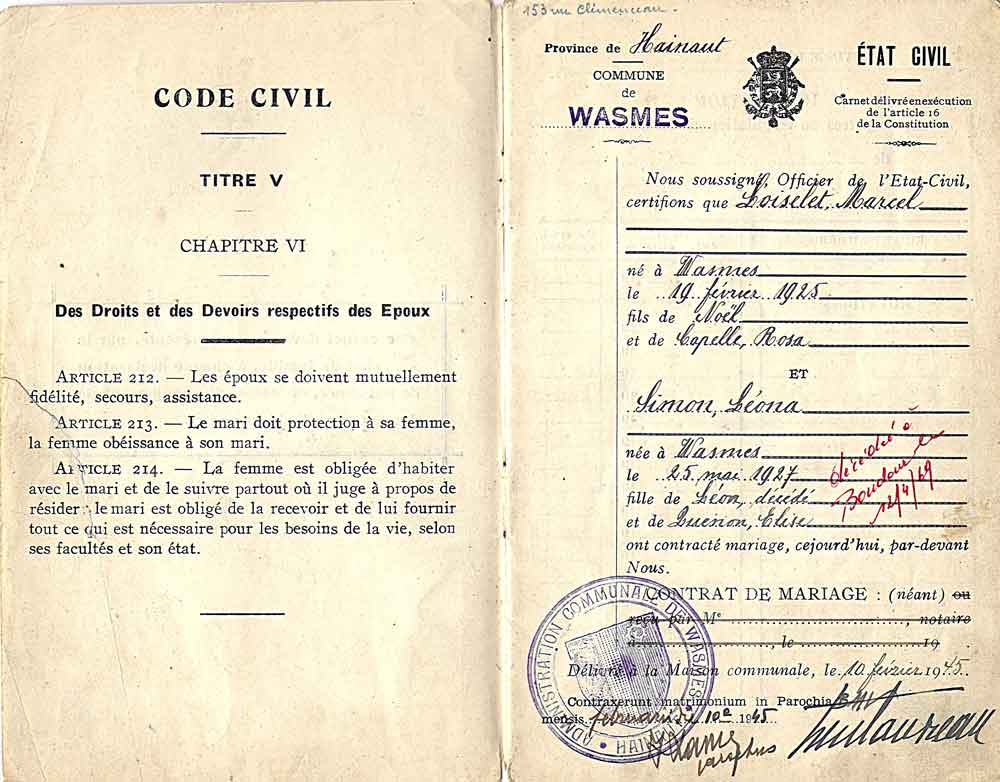 CODE CIVIL
TITRE V
CHAPITRE VI
Des Droits et des Devoirs respectifs des Epoux
ARTICLE 212. — Les époux se doivent mutuellement
fidélité, secours, assistance.
ARTICLE 213. — Le mari doit protection à sa femme,
la femme obéissance à son mari.
ARTICLE 214. — La femme est obligée d'habiter
avec le mari et de le suivre partout où il juge à propos de
résider : le mari est obligé de la recevoir et de lui fournir
tout ce qui est nécessaire pour les besoins de la vie, selon
ses facultés et son état.
153 rue Clémenceau.
Province de Hainaut
COMMUNE
de
WASMES
ÉTAT CIVIL
Carnet délivré en exécution
de l'article 16
de la Constitution
Nous soussigné, Officier de l'Etat-Civil,
certifions que Loiselet, Marcel
né à Wasmes
le 19 février 1925
fils de Noël
et de Capelle, Rosa
ET
Simon, Léona
née à Wasmes
le 25 mai 1927
fille de Léon, décédé
et de Elise
décédé à
Boudour le
12/4/69
ont contracté mariage, cejourd'hui, par-devant
Nous.
CONTRAT DE MARIAGE : (néant) ou
reçu par Me, notaire
à, le 19
Délivré à la Maison communale, le 10 février 1945.
Contraxerunt matrimonium in Parochia
mensis februarii 10a 1945
ADMINISTRATION COMMUNALE DE WASMES
HAINAUT